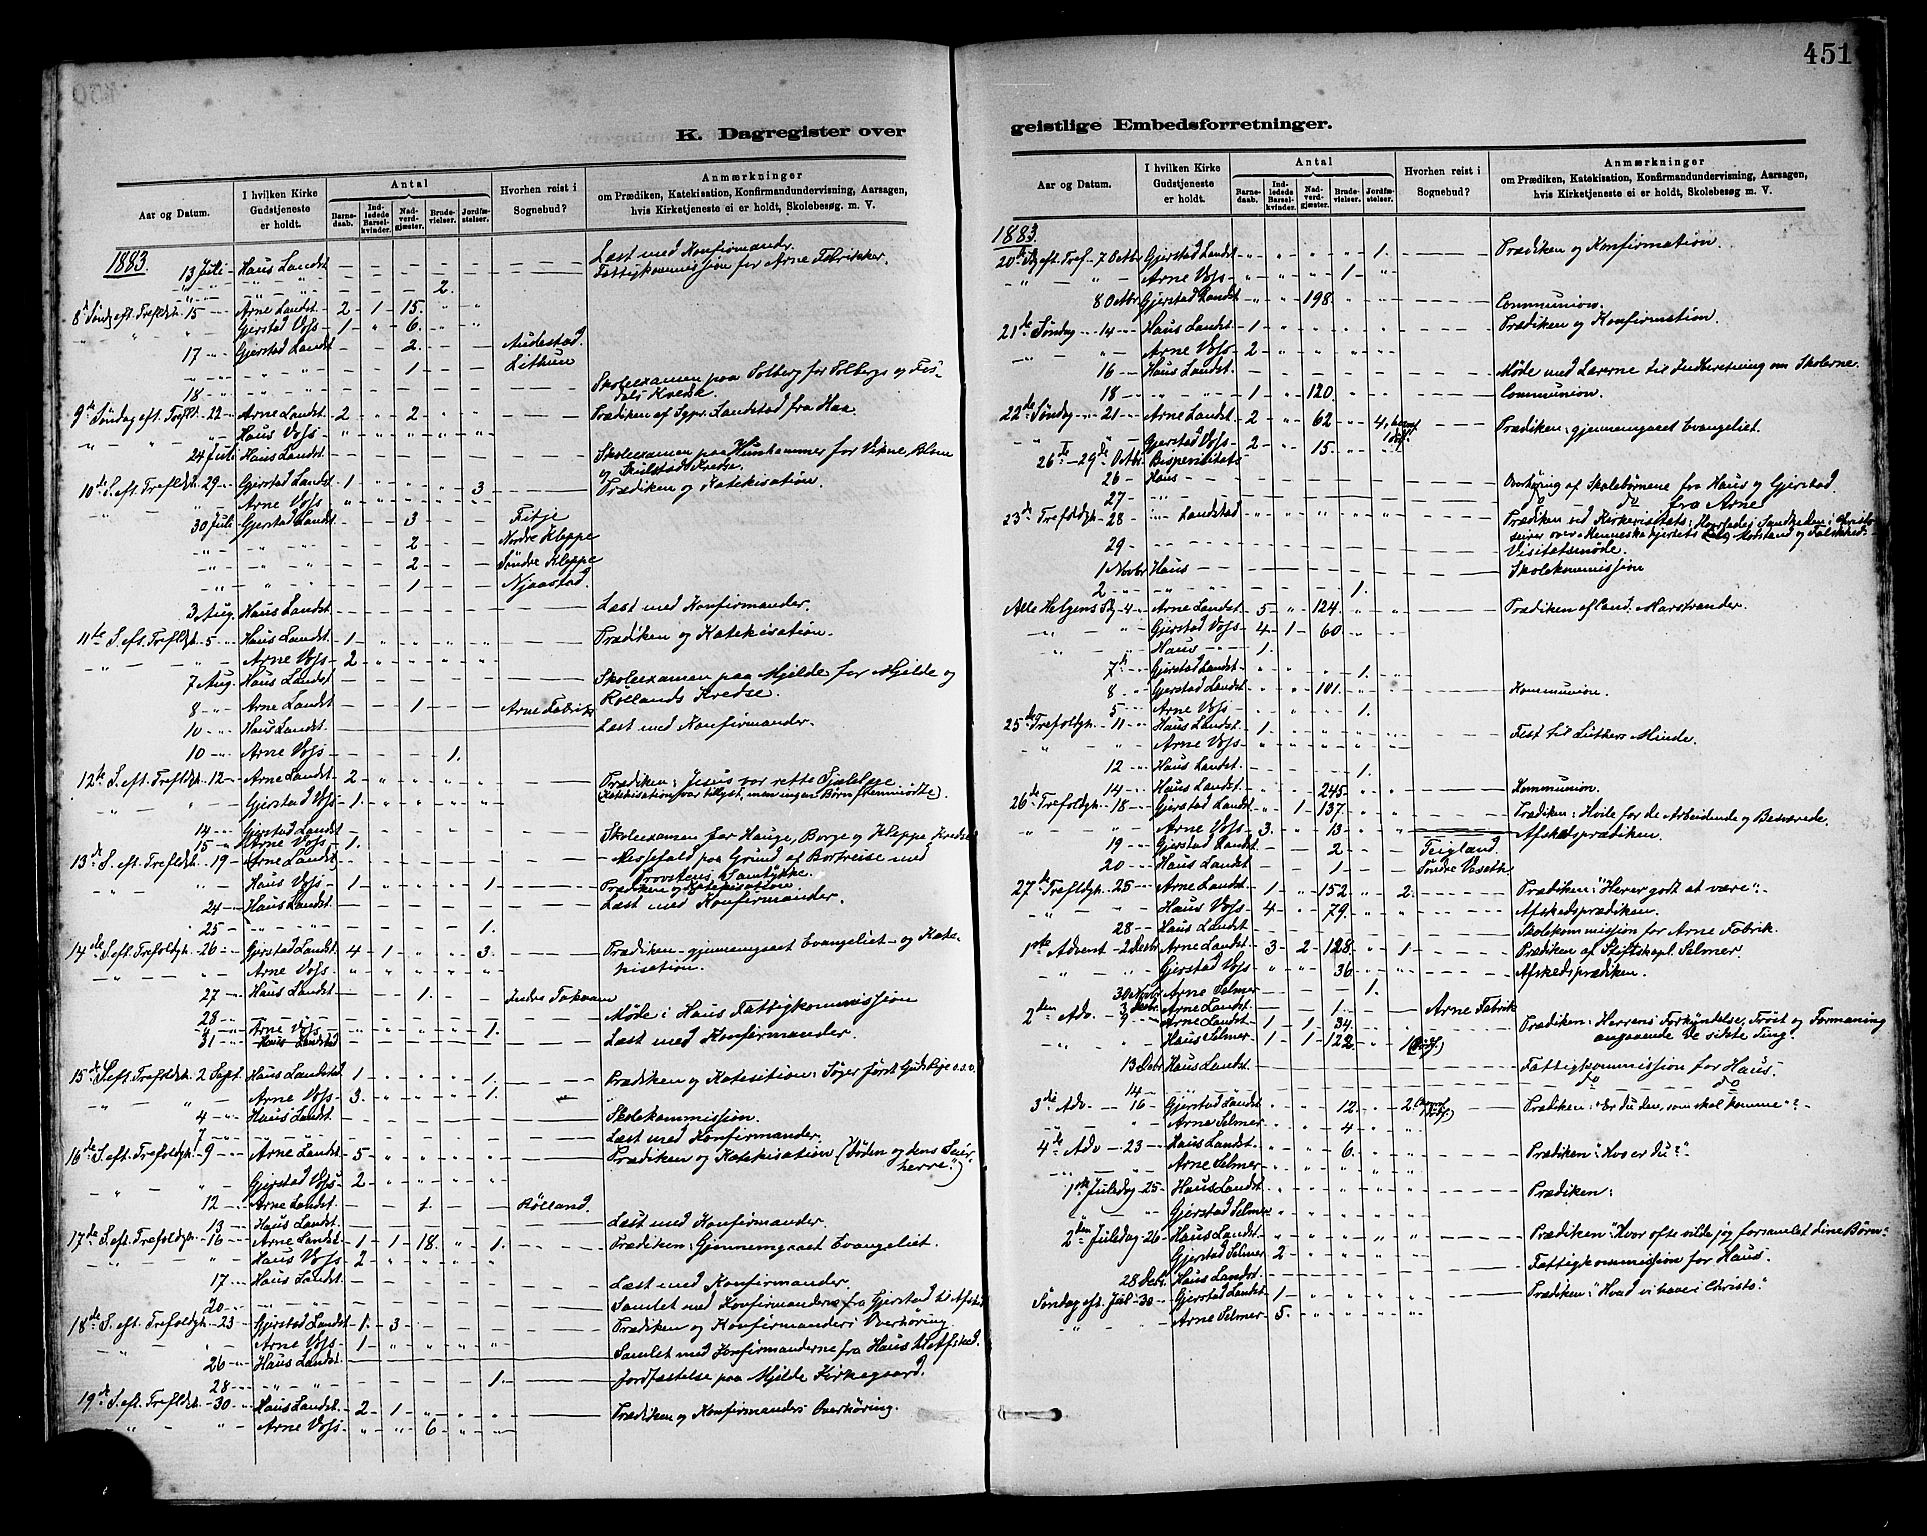 451
K. Dagregister over
Aar og Datum.
I hvilken Kirke Gudstjeneste er holdt.
Antal
Barnedaab.
Indledede Barselkvinder.
Nadverdgjæster.
Brudevielser.
Jordfæstelser.
Hvorhen reist i Sognebud?
Anmærkninger
om Prædiken, Katekisation, Konfirmandundervisning, Aarsagen,
hvis Kirketjeneste ei er holdt, Skolebesøg. m. V.
1883. 13 Juli - Haus Landst - - - - - - Læst med Konfirmander.
Fattigkommission for Arne Fabrikker.
" " " " 2.
8de Søndg eft. Trefldgh. 15 Arne Landst 2 1 15. " "
" " " Gjerstad Vojs - 1 " 6. " "
17 " Gjerstad Landst - - 2. - - Audestad.
" " " - - 1. - - Lithun
18 " " " - - - - - Skoleexamen paa Solberg for Solbergs og
9de Søndag eft. Trefldt. 22 Arne Landst. 2 " 2 " " Prædiken af Sgpr. Landstad fra Haa
" " " Haus Vojs - " " " " "
24 Juli Haus Landst. - - - - - Skoleexamen paa Hunhammer for Vikne, Blom
og Skulstads Kredse.
10de S. eft. Trefldgh. 29 Gjerstad Landst 1 " " " 3 Prædiken og Katekisation.
" " " Arne Vojs - " " " " "
30 Juli Gjerstad Landst - - 3 - - Fitje
" " " - - 2 - - Nordre Kleppe
" " " - - 2 - - Søndre Kleppe
" " " - - 1 - - Njaastad.
3 Aug. Haus Landst - - - - - Læst med Konfirmander.
11te S. eft. Trefldgh. 5 Haus Landst. 1 " " " " Prædiken og Katekisation.
" " " Arne Vojs - 2 " " " "
7 Aug. Haus Landst - - - - - Skoleexamen paa Mjelde for Mjelde og
Røllands Kredse.
8 " Arne Landst - - 1 - - Arne Fabrik
10 " Haus Landst. - - - - - Læst med Konfirmander.
10 " Arne Vojs - - - - 1.
12te S. eft. Trefoldgh. 12 Arne Landst. 2 " " " " Prædiken: Jesus vor rette Sjælelæge
(Katekisation var tillyst, men ingen Børn fremmødte).
" " " Gjerstad Vojs - 1. " " " "
14 Gjerstad Landst - - - - - Skoleexamen for Hauge, Borge og Kleppe Kredse
15 Arne Vojs - 1.
13de S. eft. Trefoldgh. 19 Arne Landst - Messefald paa Grund af Bortreise med
Provstens Samtykke.
" " " Haus Vojs - 1 " " " 1. Prædiken og Katekisation
24 Haus Landst. - - - - - Læst med Konfirmander.
25 " " " - - - - 1.
14de S. eft. Trefoldgh. 26 Gjerstad Landst 4 1 " " 3. Prædiken - gjennemgaaet Evangeliet - og Kate-
kisation.
" " " Arne Vojs - " " " " "
27 Haus Landst - - 1. - - Indre Takvam
28 - - - - - - Møde i Haus Fattigkommission
" Arne Vojs - " " " " 1.
31 Haus Landstad - - - - - Læst med Konfirmander.
15de S. eft. Trefoldgh. 2 Sept. Haus Landstad 1 " " " 1. Prædiken og Katesition: Søger først Guds Rige o.s.v.
" " " Arne Vojs - 3. " " " 1.
4 Haus Landst - - - - - Skolekommission.
7 - - - - - Læst med Konfirmander.
16de S. eft. Trefoldgh. 9 Arne Landst. 5 " " " " Prædiken og Katekisation (Døden og dens Seier-
herre)
" " " Gjerstad Vojs - 2 " " " "
12 Arne Landst. - - 1. - - Rølland.
13 Haus Landst. - - - - - Læst med Konfirmander.
17de S. eft. Trefoldgh. 16 Arne Landst. 1 1 18. " 1. Prædiken: Gjennemgaaet Evangeliet.
" " " Haus Vojs 2 " " " "
17 Haus Landst. - - - - - Læst med Konfirmander.
20 " " - - - - - Samlet med Konfirmanderne fra Gjerstad til Afsked
18de S. eft. Trefoldgh. 23 Gjerstad Landst 1. 3 " " " Prædiken og Konfirmanders Overhøring.
" " " Arne Vojs - 1 " " " "
26 Haus Landst. - - - - - Samlet med Konfirmanderne fra Haus til Afsked.
28 " " - - - - 1. - Jordfæstelse paa Mjelde Kirkegaard.
19de S. eft. Trefldgh. 30 Haus Landst. 2 1 " " " Prædiken og Konfirmanders Overhøring.
" " Arne Vojs " " 6 " "
geistlige Embedsforretninger.
Aar og Datum.
I hvilken Kirke Gudstjeneste er holdt.
Antal
Barnedaab.
Indledede Barselkvinder.
Nadverdgjæster.
Brudevielser.
Jordfæstelser.
Hvorhen reist i Sognebud?
Anmærkninger
om Prædiken, Katekisation, Konfirmandundervisning, Aarsagen,
hvis Kirketjeneste ei er holdt, Skolebesøg m. V.
1883.
20de Sg eft. Tref. 7 Octbr Gjerstad Landst " " " " 1. Prædiken og Konfirmation.
" " " Arne Vojs - " " " 1 "
8 Octbr. Gjerstad Landst " " 198. " " Communion.
21de Søndag 14 Haus Landst. 1 " " " " Prædiken og Konfirmation.
" " Arne Vojs - 2 " " " "
16 Haus Landst. - - - - - Møde med Lærerne til Indberetning om Skolerne.
18 " " 1 " 120. " " Communion.
22de Søndag 21 Arne Landst. 2 " 62 " 4, Prædiken: gjennemgaaet Evangeliet.
" " Gjerstad Vojs - 2 " 15. " "
26de - 29de Octbr. Bispevisitats
26 Haus - - Overhøring af Skolebørnene fra Haus og Gjerstad.
27 " - - do - do fra Arne
23de Trefoldgh. 28 " Landstad Prædiken ved Kirkevisitats:
Menneskehjertets Modstand og Falskhed.
29 - - Visitatsmøde.
1 Novbr Haus - - Skolekommission
2 " " " 1.
Alle Helgens Sg 4 Arne Landst. 5 " 124. " " Prædiken af Cand. Marstrander.
" " Gjerstad Vojs - 4 1 60. " "
" " Haus 1.
7de Gjerstad Landst. " " " 1.
8 Gjerstad Landst. " " 101. " " Kommunion.
5 Arne Vojs - 1.
25de Trefoldgh. 11 Haus Landst. 1 " " " " Fest til Luthers Minde.
" " Arne Vojs - " " " " "
12 Haus Landst. - - - 1.
14 Haus Landst. " " 245. " " Communion.
26de Trefoldgh. 18 Gjerstad Landst " 1 137. " " Prædiken: Hvile for de Arbeidende og Besværede.
" " Arne Vojs - 3. " 13 " " Afskedsprædiken.
19 Gjerstad Landst - - 2 - - Teigland.
20 Haus Landst - - 1 - - Søndre Vaseth
27de Trefldgh. 25 Arne Landst. 1 " 152 " 2. Prædiken: "Her er godt at være".
" " Haus Vojs - 4 " 79. " " Afskedsprædiken.
28 Haus Landst - - - - - Skolekommission for Arne Fabrik.
1ste Advent 2 Decbr Arne Landst. 3 2 128. " 1 Prædiken af Stiftskapl. Selmer.
" " Gjerstad Vojs - " " 36 " " Afskedsprædiken.
30 Novbr Arne Selmer - - - 1.
3 Decbr. Arne Landst - - 1. - - Arne Fabrik
2den Adv. 9 Arne Landst. 1 1 34. " " Prædiken: Herrens Forkyndelse, Trøst og Formaning
angaaende De sidste Ting.
" " Haus Selmer 1 1 122. "
13 Decbr Haus Landst. - - Fattigkommission for Haus.
14 " " - - do - do
3de Adv. 16 Gjerstad Landst " " 12 " 2 Prædiken: "Er du den, som skal komme"?
" " Arne Selmer " " 4 " "
4de Adv 23 Haus Landst. " " 6. " " Prædiken "Hvo er du?"
" " Arne Selmer " " " " "
1ste Juledag 25 Haus Landst. " " " " " Prædiken:
" " Gjerstad Selmer " " " " "
2den Juledag 26 Haus Landst " " " " " Prædiken: "Hvor ofte vilde jeg forsamlet dine Børn"
Gjerstad Selmer 2 " " " "
28 Decbr. Haus Landst. - - Fattigkommission for Haus.
Søndag eft. Jul 30 Gjerstad Landst 1 " " " " Prædiken: "Hvad vi have i Christo".
" " Arne Selmer 5. " " " "